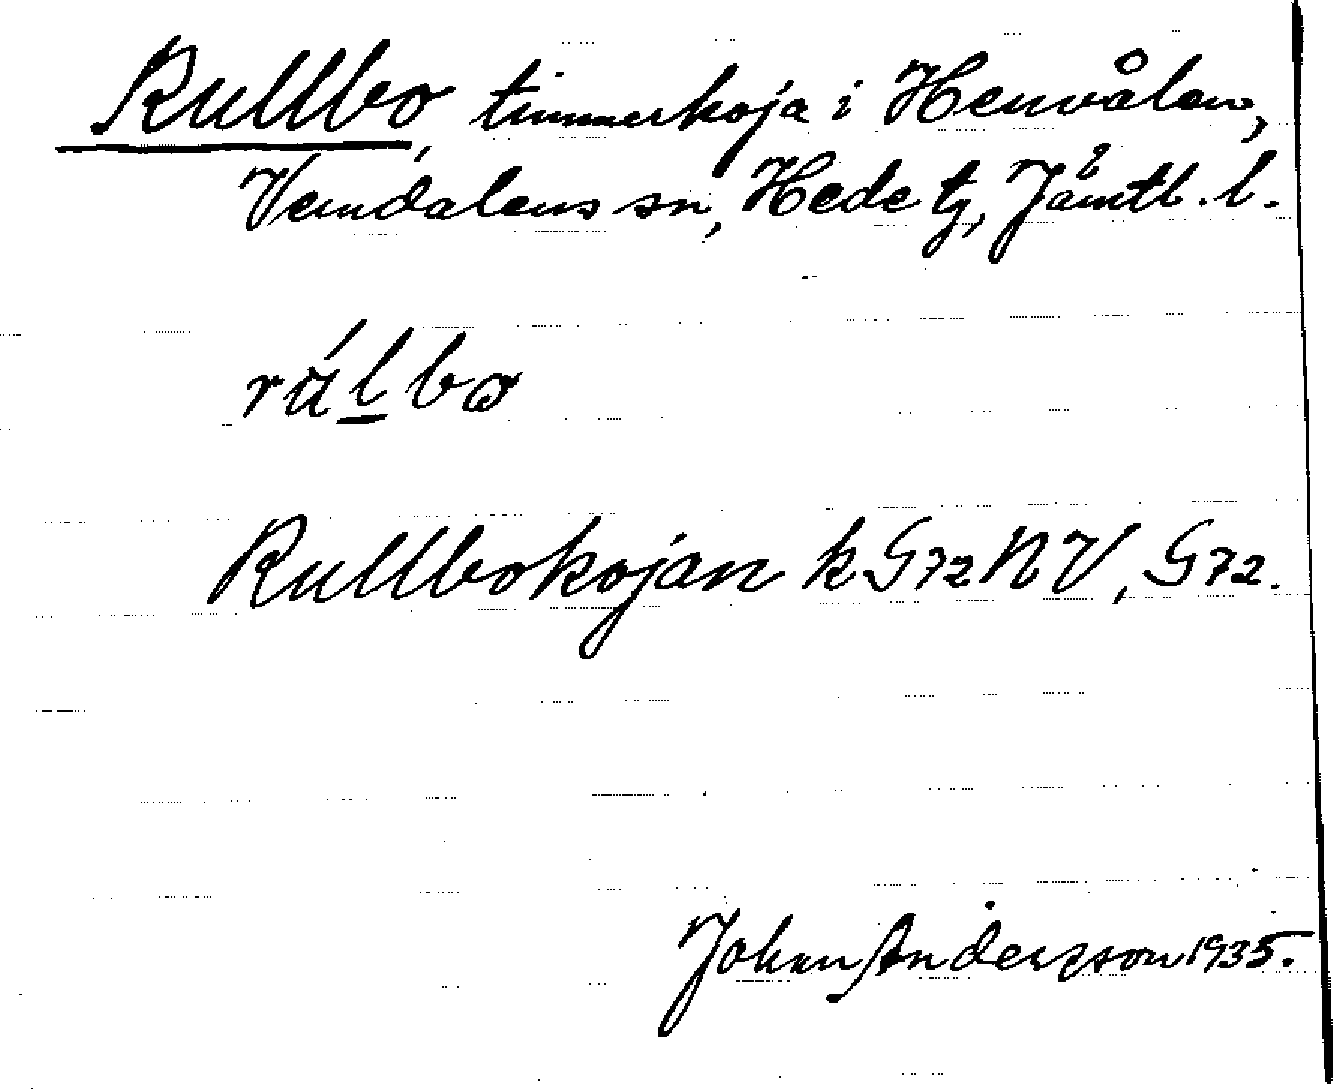 Rullbo, timmerkoja i Henvålen,
Vemdalens sn, Hede tg, Jämtl. l.
rúlbo
Rullbokojan k G72 NV, G72.
Johan Andersson 1935.